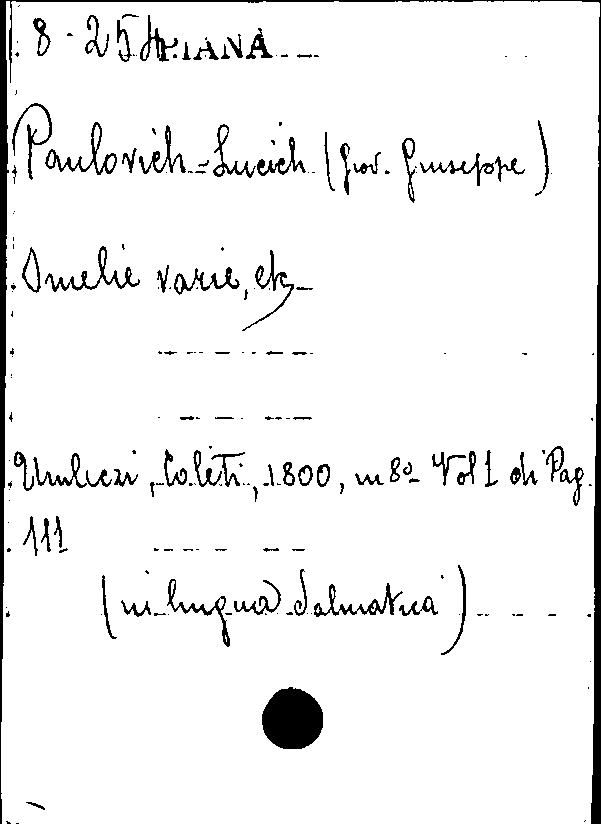 8 - 25
Paulovich-Lucich (Giov. Giuseppe)
Omelie varie, etc
Umleczi, Coleti, 1800, in 8º Vol 1 di Pag.
111
(in lingua Dalmatica)